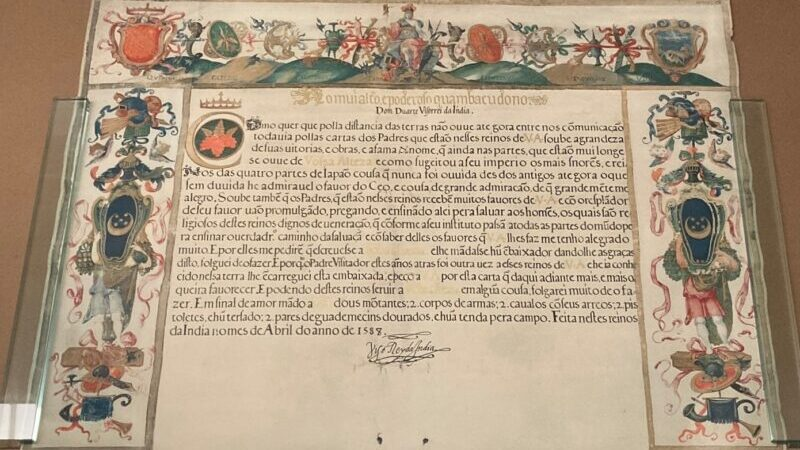 Ao mui alto, e poderoso quambacudono.
Dom Duarte Visorrei da India.
Como quer que polla distancia das terras não ouue ate gora entre nos cõmunicação
todauia pollas cartas dos Padres que estaõ nestes reinos de V.A. soube a grandeza
de suas uitorias, e obras, e a fama & nome, q̃ ainda nas partes, que estaõ mui longe
se ouue de Vossa Alteza e como sugeitou a seu imperio os mais s̃nores, e rei
nos das quatro partes de Iapaõ cousa q̃ nunca foi ouuida des dos antigos ate gora o que
sem duuida he admirauel o fauor do Ceo, e cousa de grande admiração, de q̃ grandemẽte me
alegro. Soube tambẽ q̃ os Padres, q̃ estaõ nesses reinos recebẽ muitos fauores de V.A. e cõ o resplãdor
de seu fauor uaõ promulgãdo, pregando, e ensinãdo a lei pera saluar aos homẽs, os quais saõ re
ligiosos destes reinos dignos de ueneração, q̃ conforme a seu instituto passã a todas as partes do mũdo po
ra enfinar o uerdadrº. caminho da saluaçã e cõ saber delles os fauores que V.A. lhes faz me tenho alegrado
muito. E por elles me pedirẽ q̃ escreuese a lhe mãdasse hũ ẽbaixador dandolhe as graças
disto, folguei de o fazer. E porq̃ o Padre Visitador estes años atras foi outra uez a esses reinos de V.A. e he ia conhe
cido nesta terra lhe ẽcarreguei esta embaixada, e peço a V.A por esta carta q̃ daqui adiante mais, e mais o
queira fauorecer. E podendo destes reinos seruir a em algũa cousa, folgarei muito de o fa
zer. E em sinal de amor mãdo a dous mõtantes; 2. corpos de armas; 2. caualos cõ seus arreos; 2. pis
toletes, e hũ terçado; 2. pares de guademecins dourados, e hũa tenda pera campo. Feita nestes reinos
da India no mes de Abril do anno de 1588.
Viso Rey da India